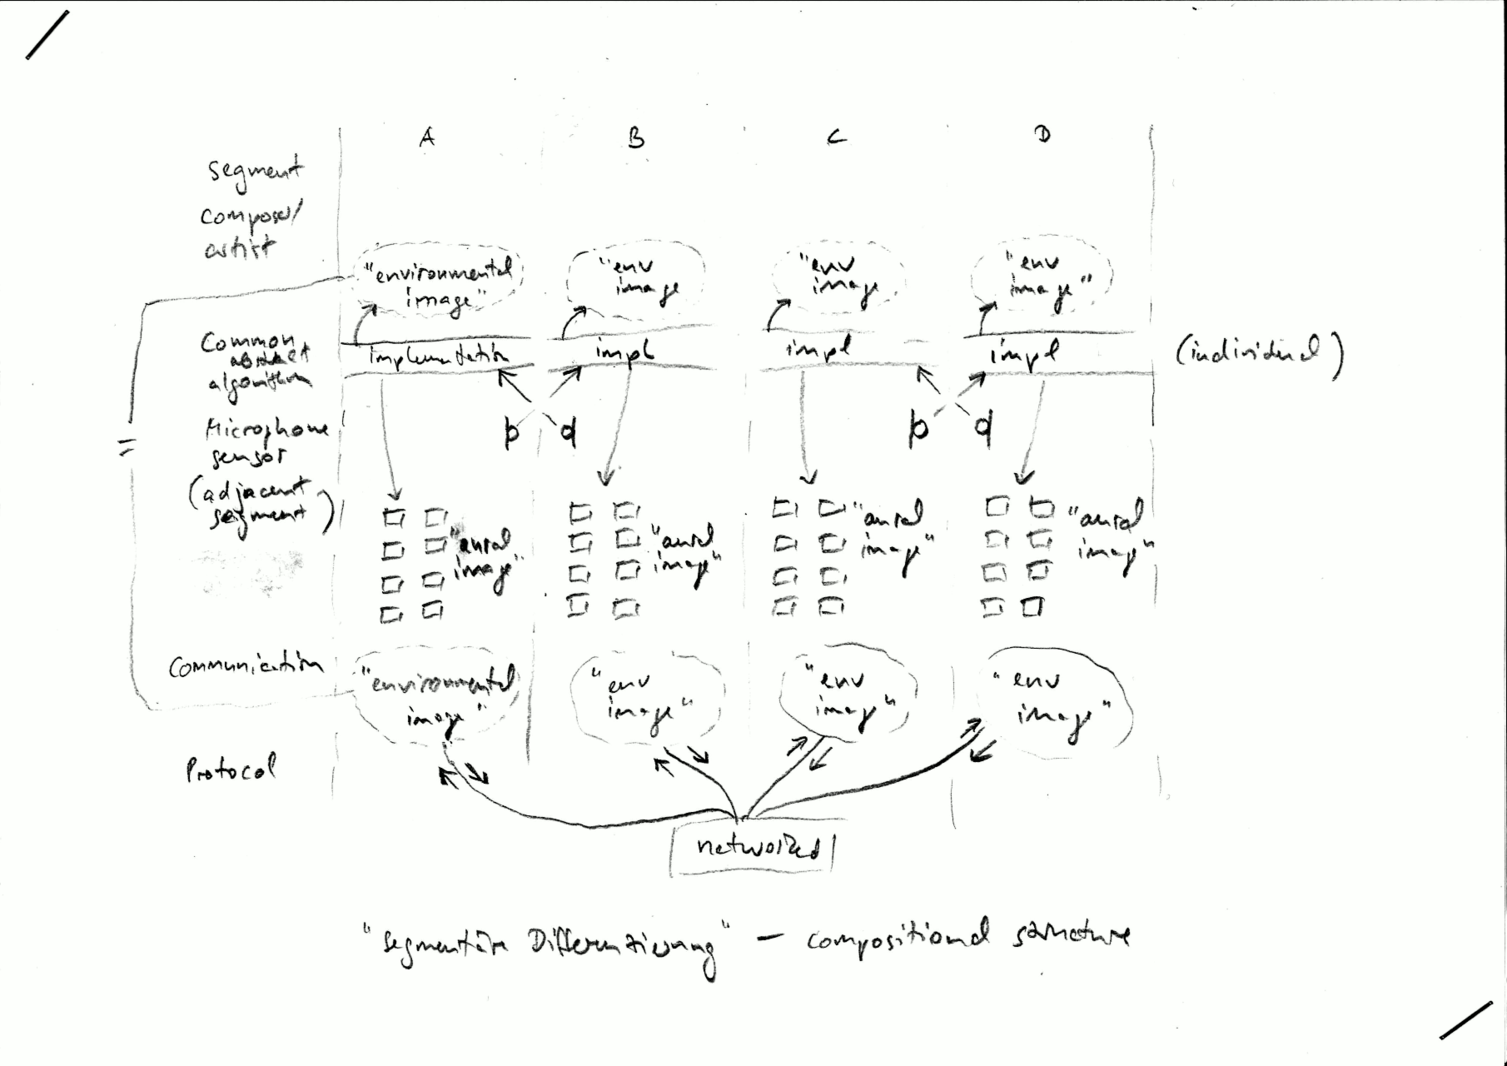 A B C D
segment
composer/
artist
"environmental
image"
"env
image
"env
image
"env
image"
Common
abstract
algorithm
implementation
impl
impl
impl
(individual)
Microphone
sensor
(adjacent
segment)
"aural
image"
"aural
image"
"aural
image"
"aural
image"
Communication
"environmental
image"
"env
image"
"env
image"
"env
image"
Protocol
networked
"segmentäre Differenzierung" – compositional structure